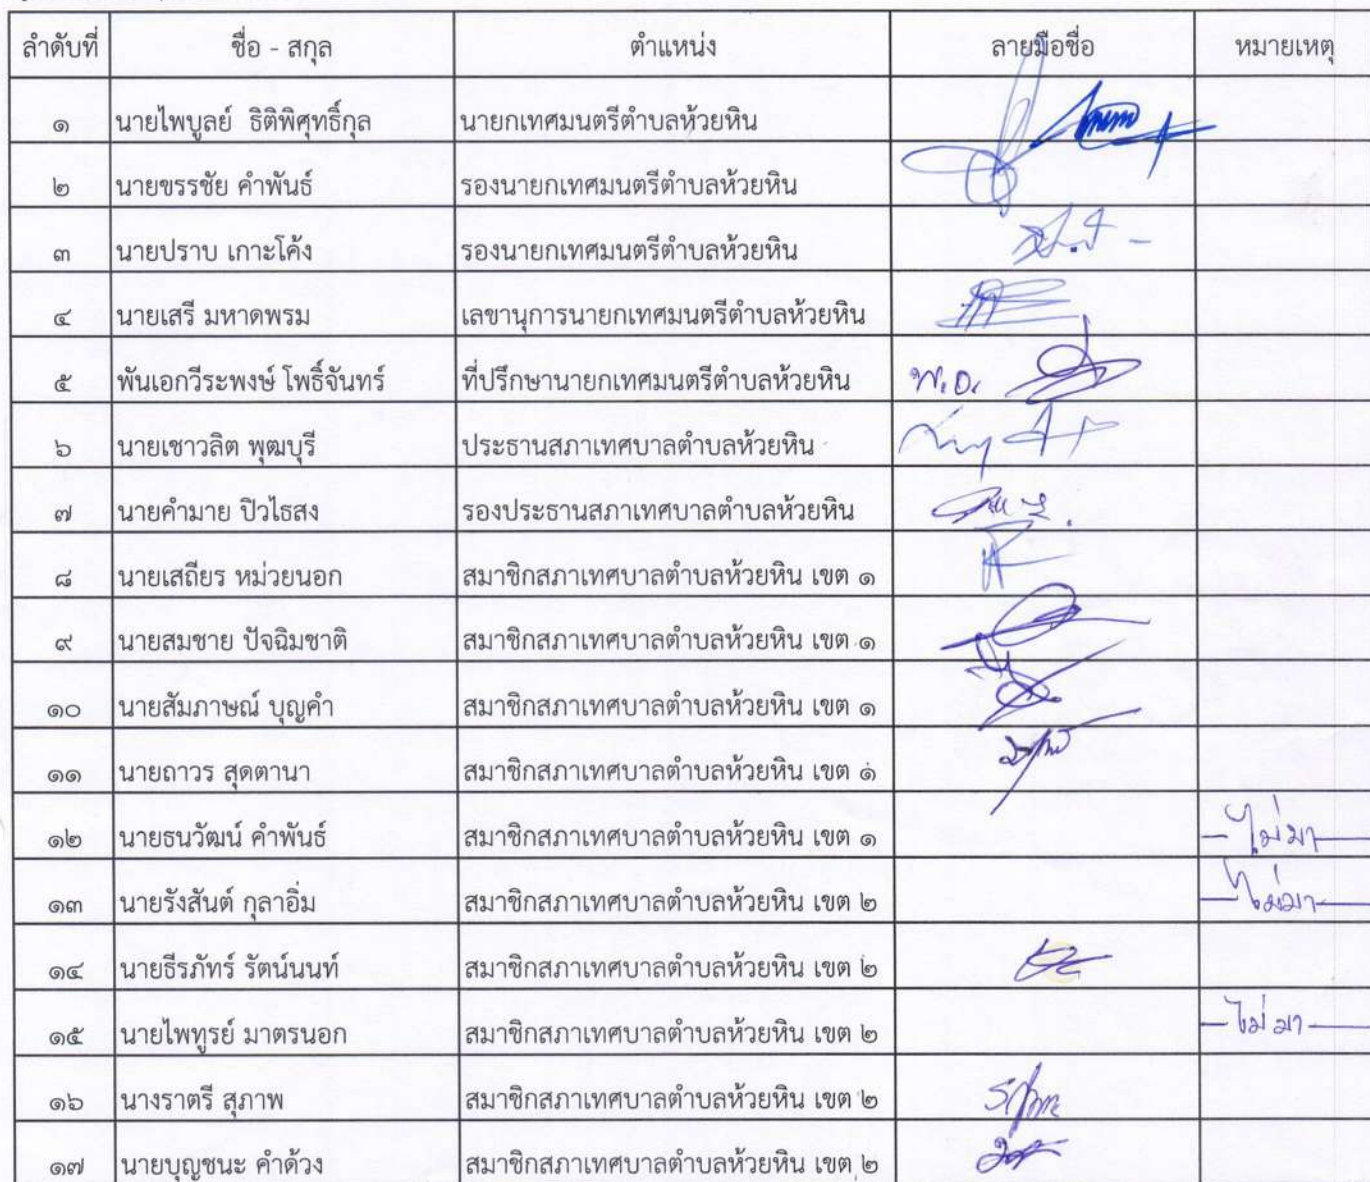 ลำดับที่ ชื่อ - สกุล ตำแหน่ง ลายมือชื่อ หมายเหตุ
๑ นายไพบูลย์ ธิติพิศุทธิ์กุล นายกเทศมนตรีตำบลห้วยหิน
๒ นายขรรชัย คำพันธ์ รองนายกเทศมนตรีตำบลห้วยหิน
๓ นายปราบ เกาะโค้ง รองนายกเทศมนตรีตำบลห้วยหิน
๔ นายเสรี มหาดพรม เลขานุการนายกเทศมนตรีตำบลห้วยหิน
๕ พันเอกวีระพงษ์ โพธิ์จันทร์ ที่ปรึกษานายกเทศมนตรีตำบลห้วยหิน พ.อ.
๖ นายเชาวลิต พุฒบุรี ประธานสภาเทศบาลตำบลห้วยหิน
๗ นายคำมาย ปิวไธสง รองประธานสภาเทศบาลตำบลห้วยหิน
๘ นายเสถียร หม่วยนอก สมาชิกสภาเทศบาลตำบลห้วยหิน เขต ๑
๙ นายสมชาย ปัจฉิมชาติ สมาชิกสภาเทศบาลตำบลห้วยหิน เขต ๑
๑๐ นายสัมภาษณ์ บุญคำ สมาชิกสภาเทศบาลตำบลห้วยหิน เขต ๑
๑๑ นายถาวร สุดตานา สมาชิกสภาเทศบาลตำบลห้วยหิน เขต ๑
๑๒ นายธนวัฒน์ คำพันธ์ สมาชิกสภาเทศบาลตำบลห้วยหิน เขต ๑ - ไม่มา
๑๓ นายรังสันต์ กุลาอิ่ม สมาชิกสภาเทศบาลตำบลห้วยหิน เขต ๒ - ไม่มา
๑๔ นายธีรภัทร์ รัตน์นนท์ สมาชิกสภาเทศบาลตำบลห้วยหิน เขต ๒
๑๕ นายไพทูรย์ มาตรนอก สมาชิกสภาเทศบาลตำบลห้วยหิน เขต ๒ - ไม่มา
๑๖ นางราตรี สุภาพ สมาชิกสภาเทศบาลตำบลห้วยหิน เขต ๒
๑๗ นายบุญชนะ คำด้วง สมาชิกสภาเทศบาลตำบลห้วยหิน เขต ๒